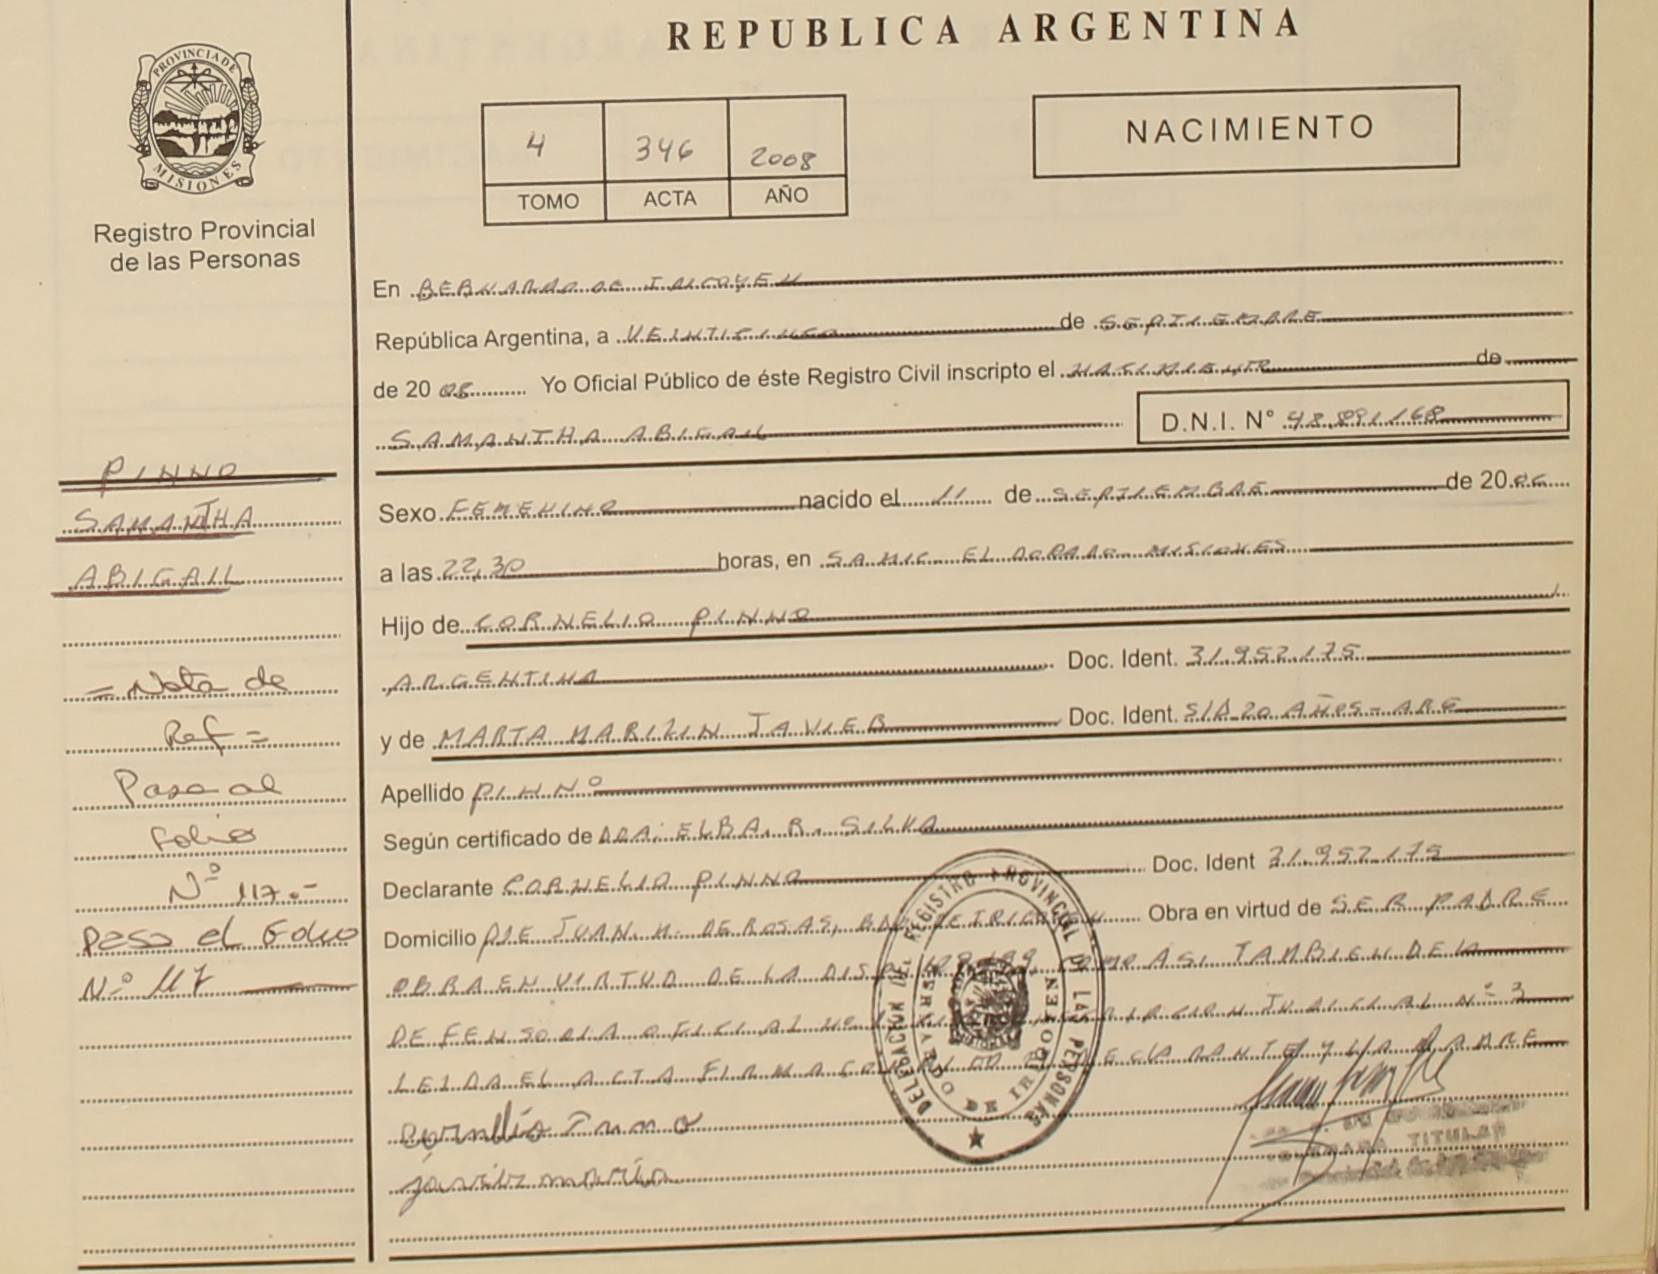 REPUBLICA ARGENTINA
PROVINCIA DE
MISIONES
Registro Provincial
de las Personas
4 346 2008
TOMO ACTA AÑO
NACIMIENTO
En BERNARDO DE IRIGOYEN
República Argentina, a VEINTICINCO de SEPTIEMBRE
de 20 08 Yo Oficial Público de éste Registro Civil inscripto el NACIMIENTO de
SAMANTHA ABIGAIL D.N.I. N° 48.891.168
PINNO
SAMANTHA
ABIGAIL
= Nota de
Ref =
Pasa al
folio
N° 117.-
Paso el Folio
N° 117
Sexo FEMENINO nacido el 11 de SEPTIEMBRE de 20 06
a las 22,30 horas, en SAMIC EL DORADO MISIONES
Hijo de CORNELIO PINNO
ARGENTINA Doc. Ident. 31.952.175
y de MARTA MARILIN JAVIER Doc. Ident. S/D 20 AÑOS - ARG
Apellido PINNO
Según certificado de DRA. ELBA. R. SILVA
Declarante CORNELIO PINNO Doc. Ident 31.952.175
Domicilio JUAN. M. DE ROSAS, Obra en virtud de SER PADRE
OBRA EN VIRTUD DE LA DISP. ASI TAMBIEN DE LA
DEFENSORIA OFICIAL JUDICIAL N° 3
LEIDA EL ACTA FIRMA Y LA MADRE
Cornelio Pinno
javier maria
DELEGACION DEL REGISTRO PROVINCIAL DE LAS PERSONAS
BERNARDO DE IRIGOYEN
TITULAR